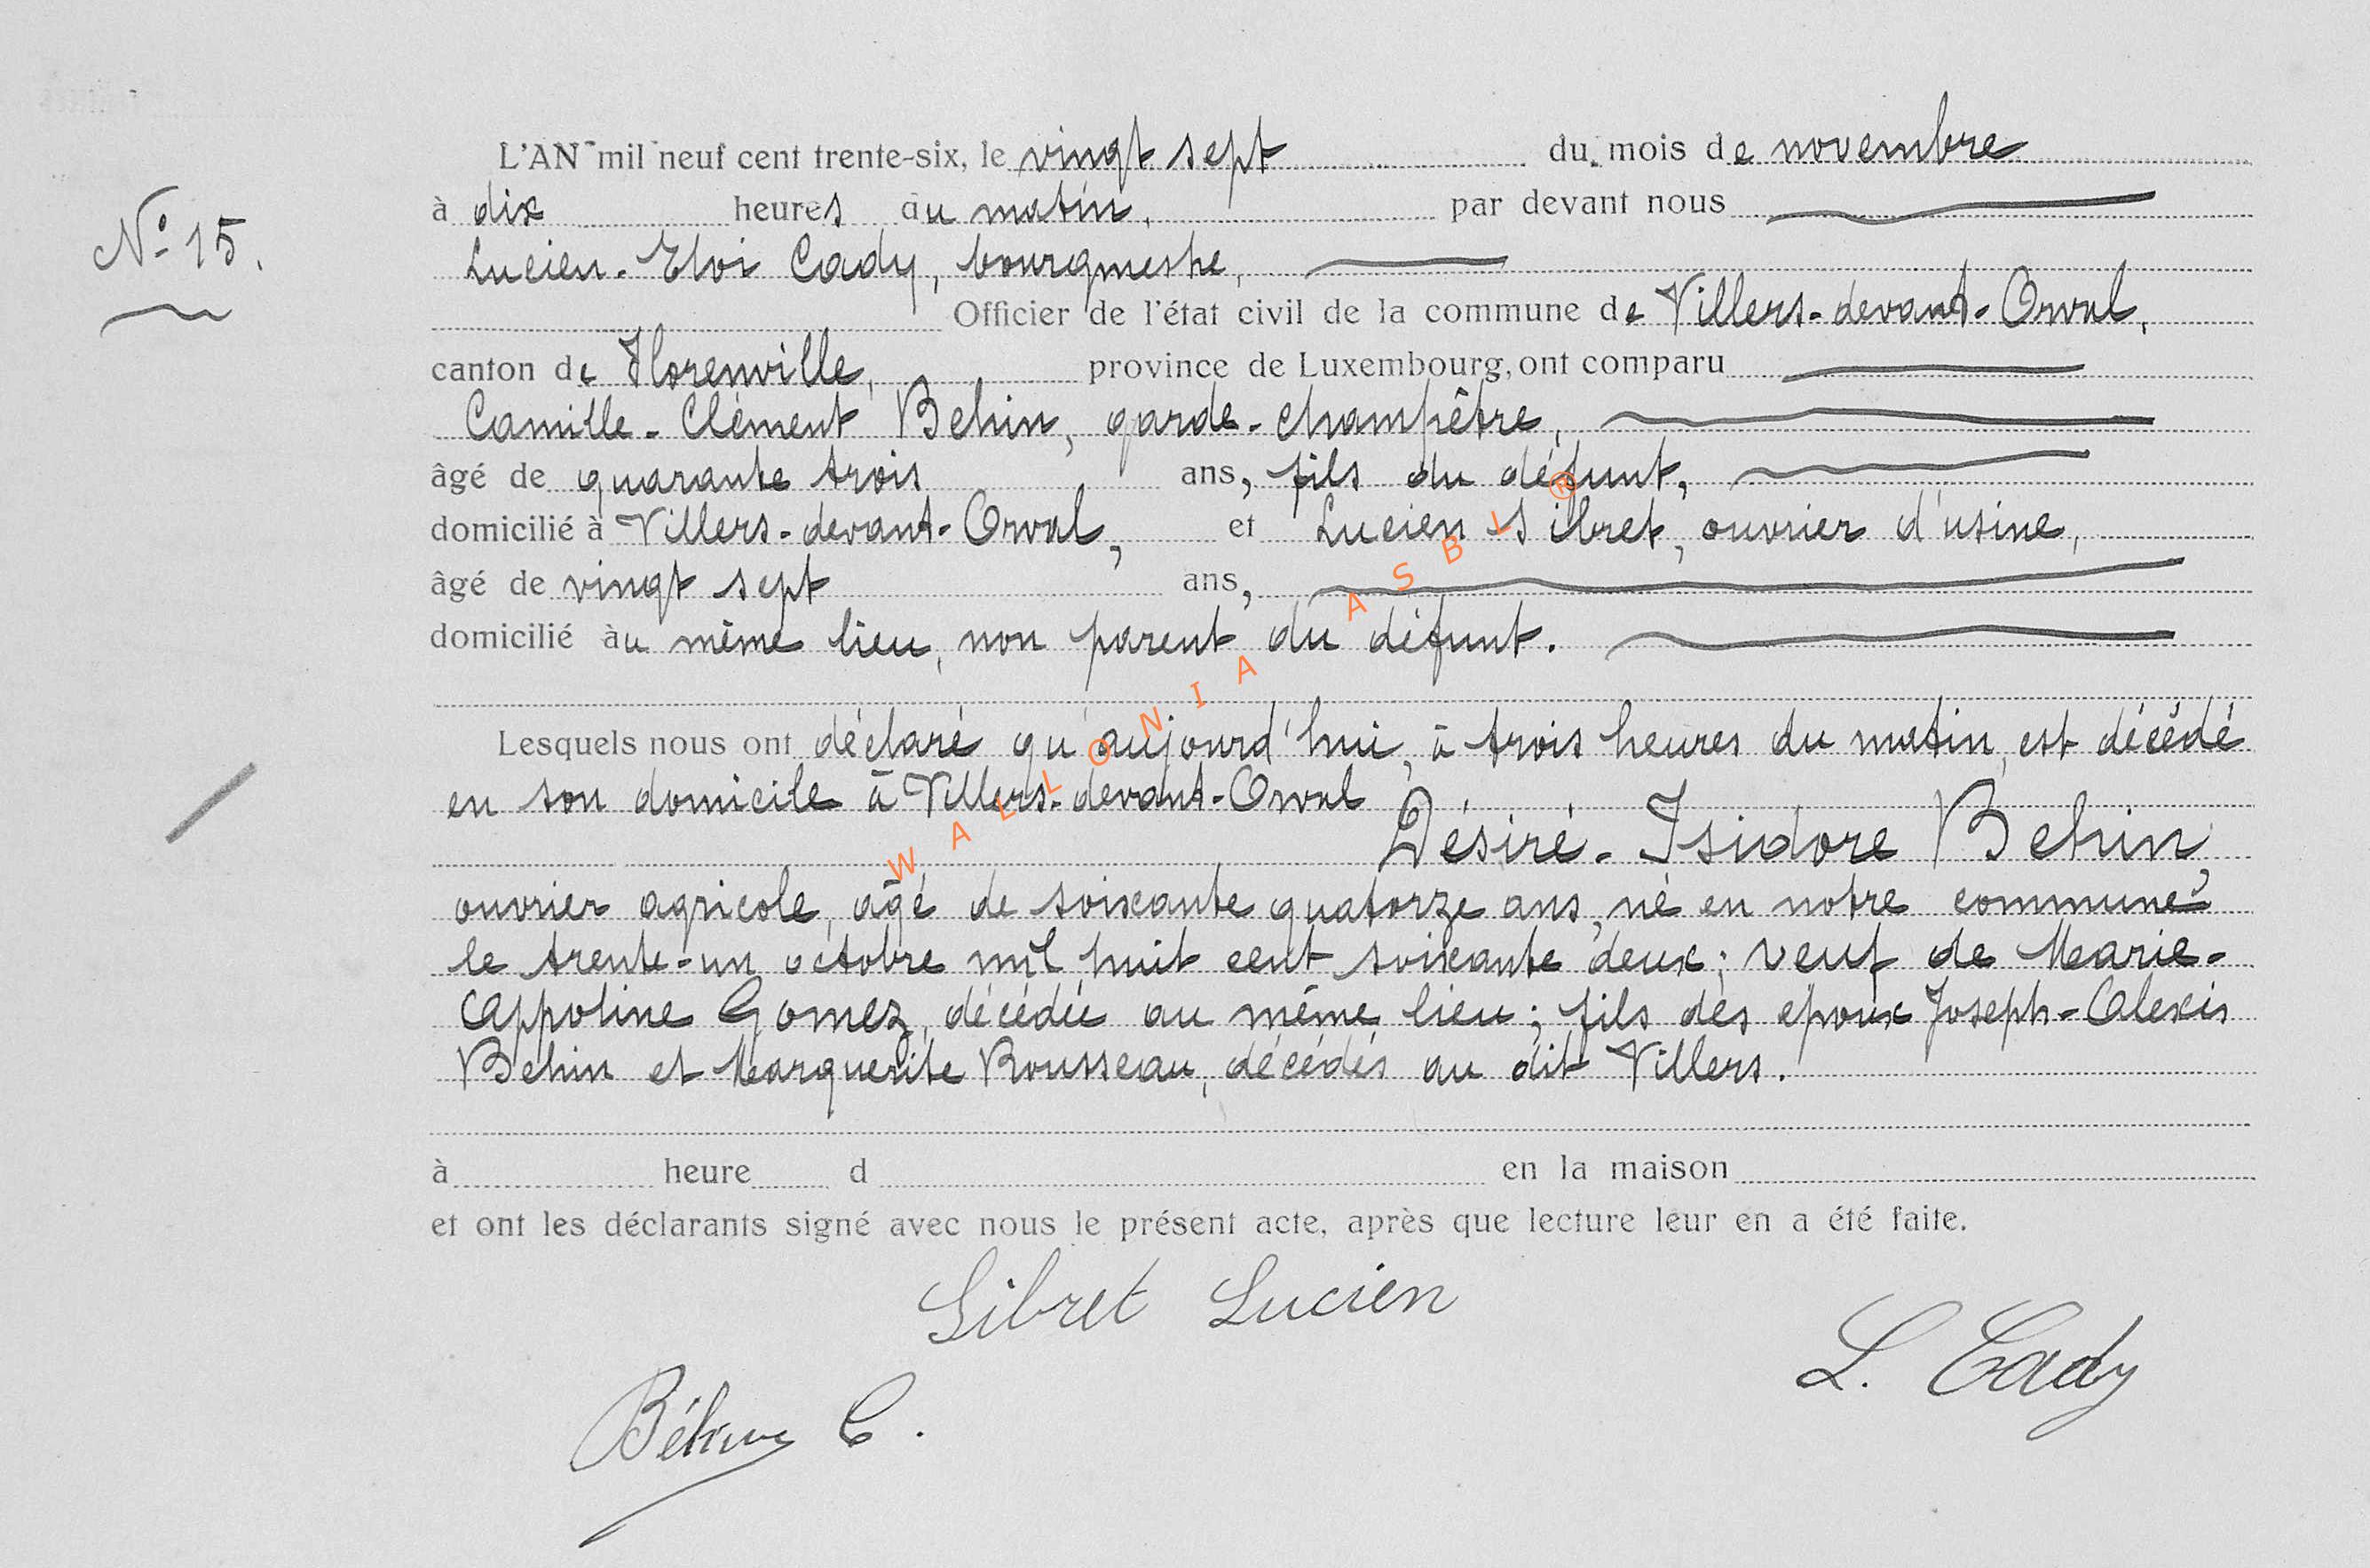 L'AN mil neuf cent trente-six, le vingt sept du mois de novembre
à dix heures du matin, par devant nous
N° 15.
Lucien-Eloi Cady, bourgmestre,
Officier de l'état civil de la commune de Villers-devant-Orval,
canton de Florenville, province de Luxembourg, ont comparu
Camille-Clément Behin, garde-champêtre,
âgé de quarante trois ans, fils du défunt,
domicilié à Villers-devant-Orval, et Lucien Sibret, ouvrier d'usine,
âgé de vingt sept ans,
domicilié au même lieu, non parent du défunt.
Lesquels nous ont déclaré qu'aujourd'hui, à trois heures du matin, est décédé
en son domicile à Villers-devant-Orval
Désiré-Isidore Behin,
ouvrier agricole, âgé de soixante quatorze ans, né en notre commune
le trente-un octobre mil huit cent soixante deux; veuf de Marie-
Appoline Gomez, décédée au même lieu; fils des époux Joseph-Alexis
Behin et Marguerite Rousseau, décédés au dit Villers.
à heure d en la maison
et ont les déclarants signé avec nous le présent acte, après que lecture leur en a été faite.
Sibret Lucien
L. Cady
Béhin C.
WALLONIA ASBL ®